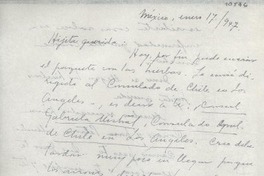 México, enero 17/947
Hijita querida:
Hoy, por fin pude enviar
el paquete con las hierbas. Lo envié di-
rigido al Consulado de Chile en Los
Angeles.-, es decir a: Consul
Gabriela Mistral, Consulado Gral.
de Chile en Los Angeles. Creo debe
tardar muy poco en llegar porque